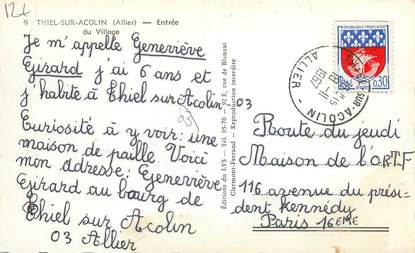 12f
9 THIEL-SUR-ACOLIN (Allier) - Entrée
du Village
Je m'appelle Geneviève
Girard j'ai 6 ans et
j'habite à Thiel sur Acolin 03
03
Curiosité à y voir: une
maison de paille. Voici
mon adresse: Geneviève
Girard au bourg de
Thiel sur Acolin
03 Allier
Editions du LYS - Tél. 05-70 - 92, r. de Blanzat
Clermont-Ferrand - Reproduction interdite
REPUBLIQUE FRANÇAISE
0,30
SUR-ACOLIN
ALLIER
1967
Route du jeudi
Maison de l'ORTF
116 avenue du prési-
dent Kennedy
Paris 16EME